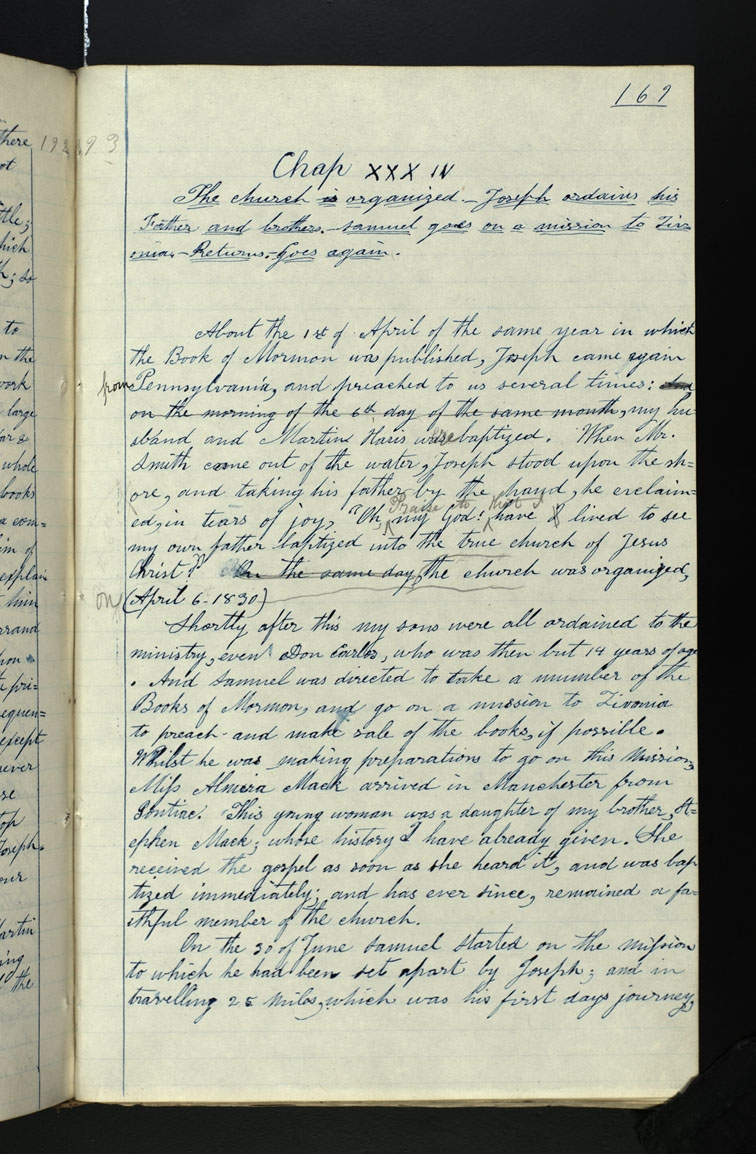 169
Chap XXXIV
The church is organized - Joseph ordains his
Father and brothers - Samuel goes on a mission to Livo
nia - Returns - Goes again.
About the 1st of April of the same year in which
the Book of Mormon was published, Joseph came again
from Pennsylvania, and preached to us several times: And
on the morning of the 6th day of the same month, my hu
sband and Martin Haris were baptized. When Mr.
Smith came out of the water, Joseph stood upon the sh=
ore, and taking his father by the hand, he exclaim=
ed, in tears of joy, "Oh, Praise to my God! that I have I lived to see
my own father baptized into the true church of Jesus
Christ!" On the same day, the church was organized,
on (April 6. 1830)
Shortly after this my sons were all ordained to the
ministry, even Don Carlos, who was then but 14 years of age
. And Samuel was directed to take a nu­mber of the
Books of Mormon, and go on a mission to Livonia
to preach - and make sale of the books, if possible.
Whilst he was making preparations to go on this mission,
Miss Almira Mack arrived in Manchester from
Pontiac. This young woman was a daughter of my brother, St=
ephen Mack; whose history I have already given. She
received the gospel as soon as she heard it, and was bap
tized immediately; and has ever since, remained a fa=
ithful member of the church.
On the 30 of June Samuel started on the mission
to which he had been set apart by Joseph; and in
travelling 25 miles, which was his first days journey,
there
ot
ttle;
hich
h; so
to
n the
work
large
whole
books
a com=
im of
explain
him
errand
pri=
equen=
except
ever
Joseph.
our
artin
the